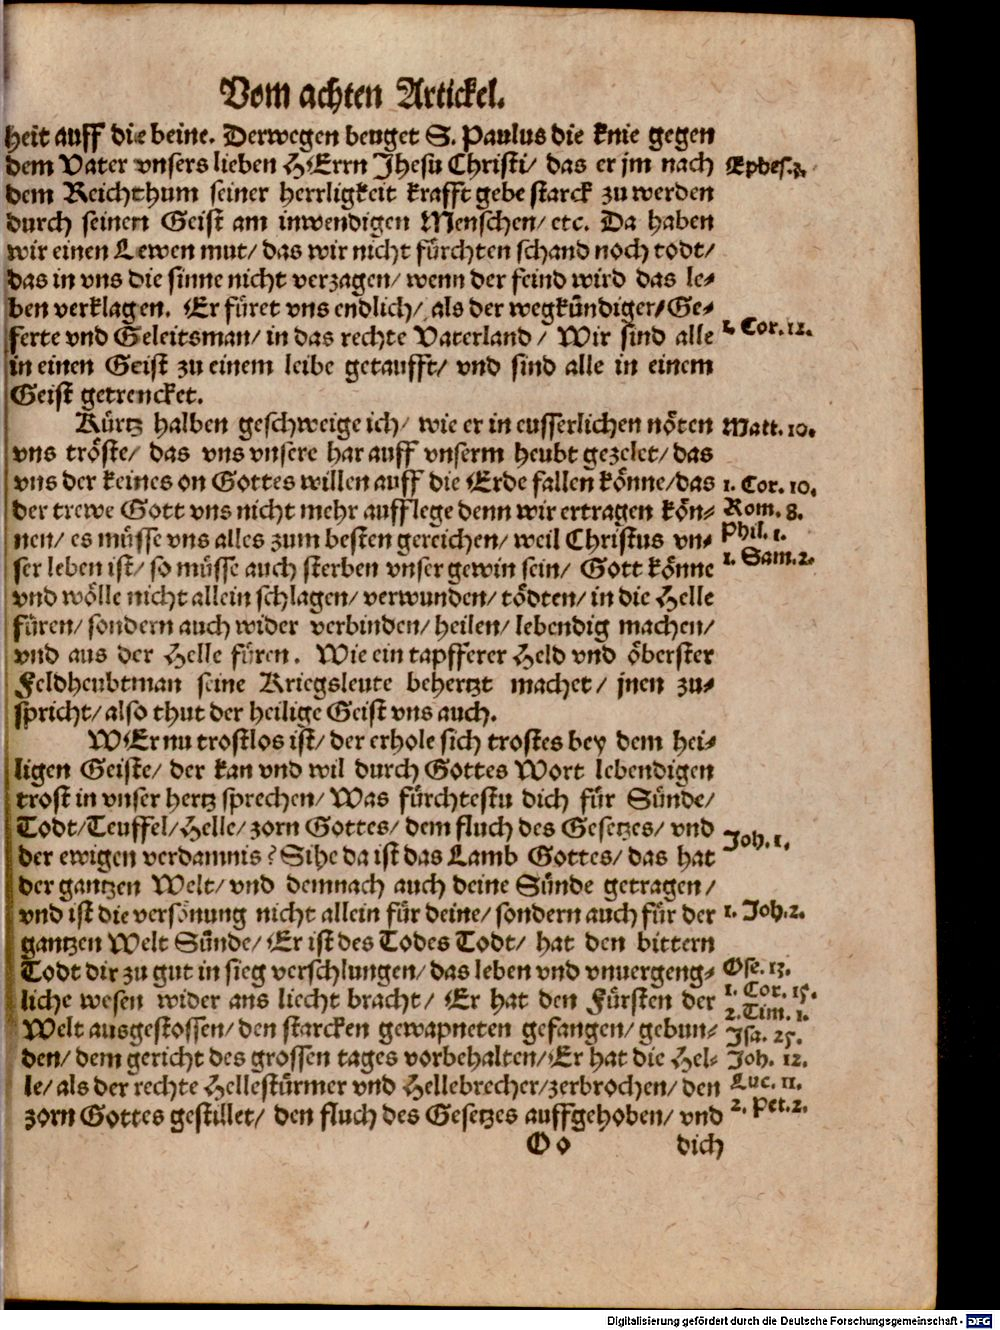 Vom achten Artickel.
heit auff die beine. Derwegen beuget S. Paulus die knie gegen
dem Vater vnsers lieben HErrn Jhesu Christi/ das er jm nach
Ephes. 3.
dem Reichthum seiner herrligkeit krafft gebe starck zu werden
durch seinen Geist am inwendigen Menschen/ etc. Da haben
wir einen Lewen mut/ das wir nicht fürchten schand noch todt/
das in vns die sinne nicht verzagen/ wenn der feind wird das le-
ben verklagen. Er füret vns endlich/ als der wegkündiger/ Ge-
ferte vnd Geleitsman/ in das rechte Vaterland/ Wir sind alle
1. Cor. 12.
in einen Geist zu einem leibe getaufft/ vnd sind alle in einem
Geist getrencket.
Kürtz halben geschweige ich/ wie er in eusserlichen nöten
Matt. 10.
vns tröste/ das vns vnsere har auff vnserm heubt gezelet/ das
vns der keines on Gottes willen auff die Erde fallen könne/ das
1. Cor. 10.
der trewe Gott vns nicht mehr aufflege denn wir ertragen kön-
Rom. 8.
nen/ es müsse vns alles zum besten gereichen/ weil Christus vn-
Phil. 1.
ser leben ist/ so müsse auch sterben vnser gewin sein/ Gott könne
1. Sam. 2.
vnd wölle nicht allein schlagen/ verwunden/ tödten/ in die Helle
füren/ sondern auch wider verbinden/ heilen/ lebendig machen/
vnd aus der Helle füren. Wie ein tapfferer Held vnd öberster
Feldheubtman seine Kriegsleute behertzt machet/ jnen zu-
spricht/ also thut der heilige Geist vns auch.
WEr nu trostlos ist/ der erhole sich trostes bey dem hei-
ligen Geiste/ der kan vnd wil durch Gottes Wort lebendigen
trost in vnser hertz sprechen/ Was fürchtestu dich für Sünde/
Todt/ Teuffel/ Helle/ zorn Gottes/ dem fluch des Gesetzes/ vnd
der ewigen verdamnis? Sihe da ist das Lamb Gottes/ das hat
Joh. 1.
der gantzen Welt/ vnd demnach auch deine Sünde getragen/
vnd ist die versönung nicht allein für deine/ sondern auch für der
1. Joh. 2.
gantzen Welt Sünde/ Er ist des Todes Todt/ hat den bittern
Todt dir zu gut in sieg verschlungen/ das leben vnd vnuergeng-
Ose. 13.
liche wesen wider ans liecht bracht/ Er hat den Fürsten der
1. Cor. 15.
2. Tim. 1.
Welt ausgestossen/ den starcken gewapneten gefangen/ gebun-
Jsa. 25.
den/ dem gericht des grossen tages vorbehalten/ Er hat die Hel-
Joh. 12.
le/ als der rechte Hellestürmer vnd Hellebrecher/ zerbrochen/ den
Luc. 11.
zorn Gottes gestillet/ den fluch des Gesetzes auffgehoben/ vnd
2. Pet. 2.
O o
dich
Digitalisierung gefördert durch die Deutsche Forschungsgemeinschaft - DFG